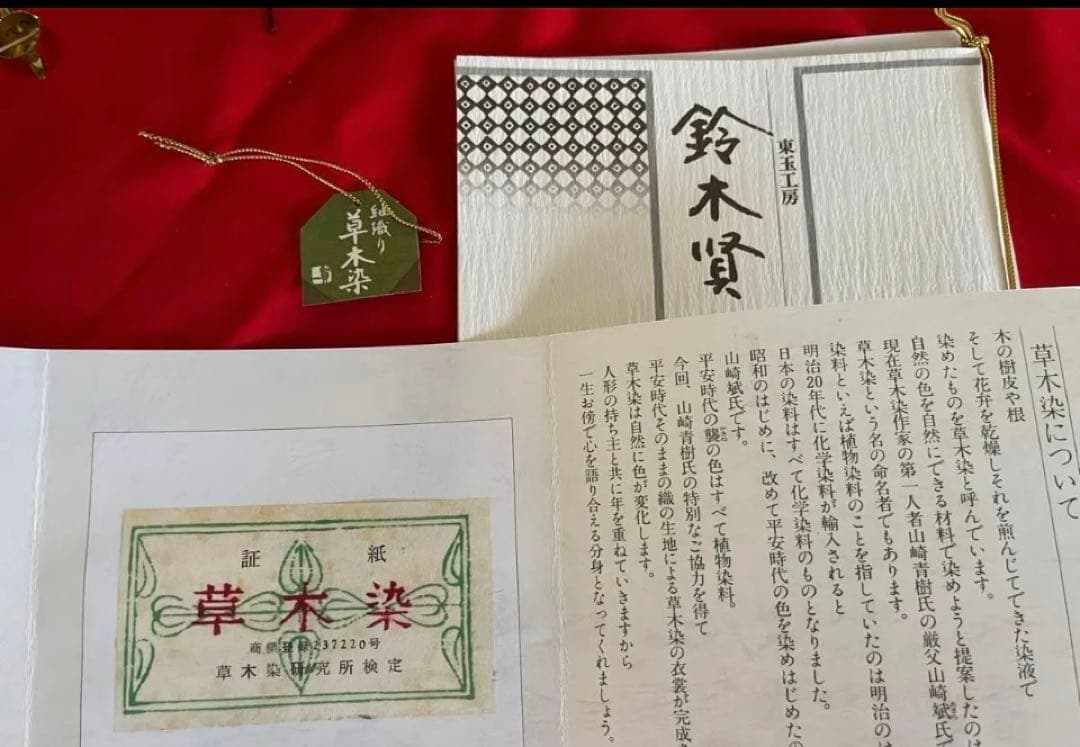 紬織り
草木染
東玉工房
鈴木賢
草木染について
木の樹皮や根
そして花弁を乾燥しそれを煎んじてできた染液で
染めたものを草木染と呼んでいます。
自然の色を自然にできる材料で染めようと提案したのは
現在草木染作家の第一人者山崎青樹氏の厳父山崎斌氏で
草木染という名の命名者でもあります。
染料といえば植物染料のことを指していたのは明治の
明治20年代に化学染料が輸入されると
日本の染料はすべて化学染料のものとなりました。
昭和のはじめに、改めて平安時代の色を染めはじめたの
山崎斌氏です。
平安時代の襲の色はすべて植物染料。
今回、山崎青樹氏の特別なご協力を得て
平安時代そのままの織の生地による草木染の衣裳が完成
草木染は自然に色が変化します。
人形の持ち主と共に年を重ねていきますから
一生お傍で心を語り合える分身となってくれましょう。
証 紙
草木染
商標登録237220号
草木染研究所検定